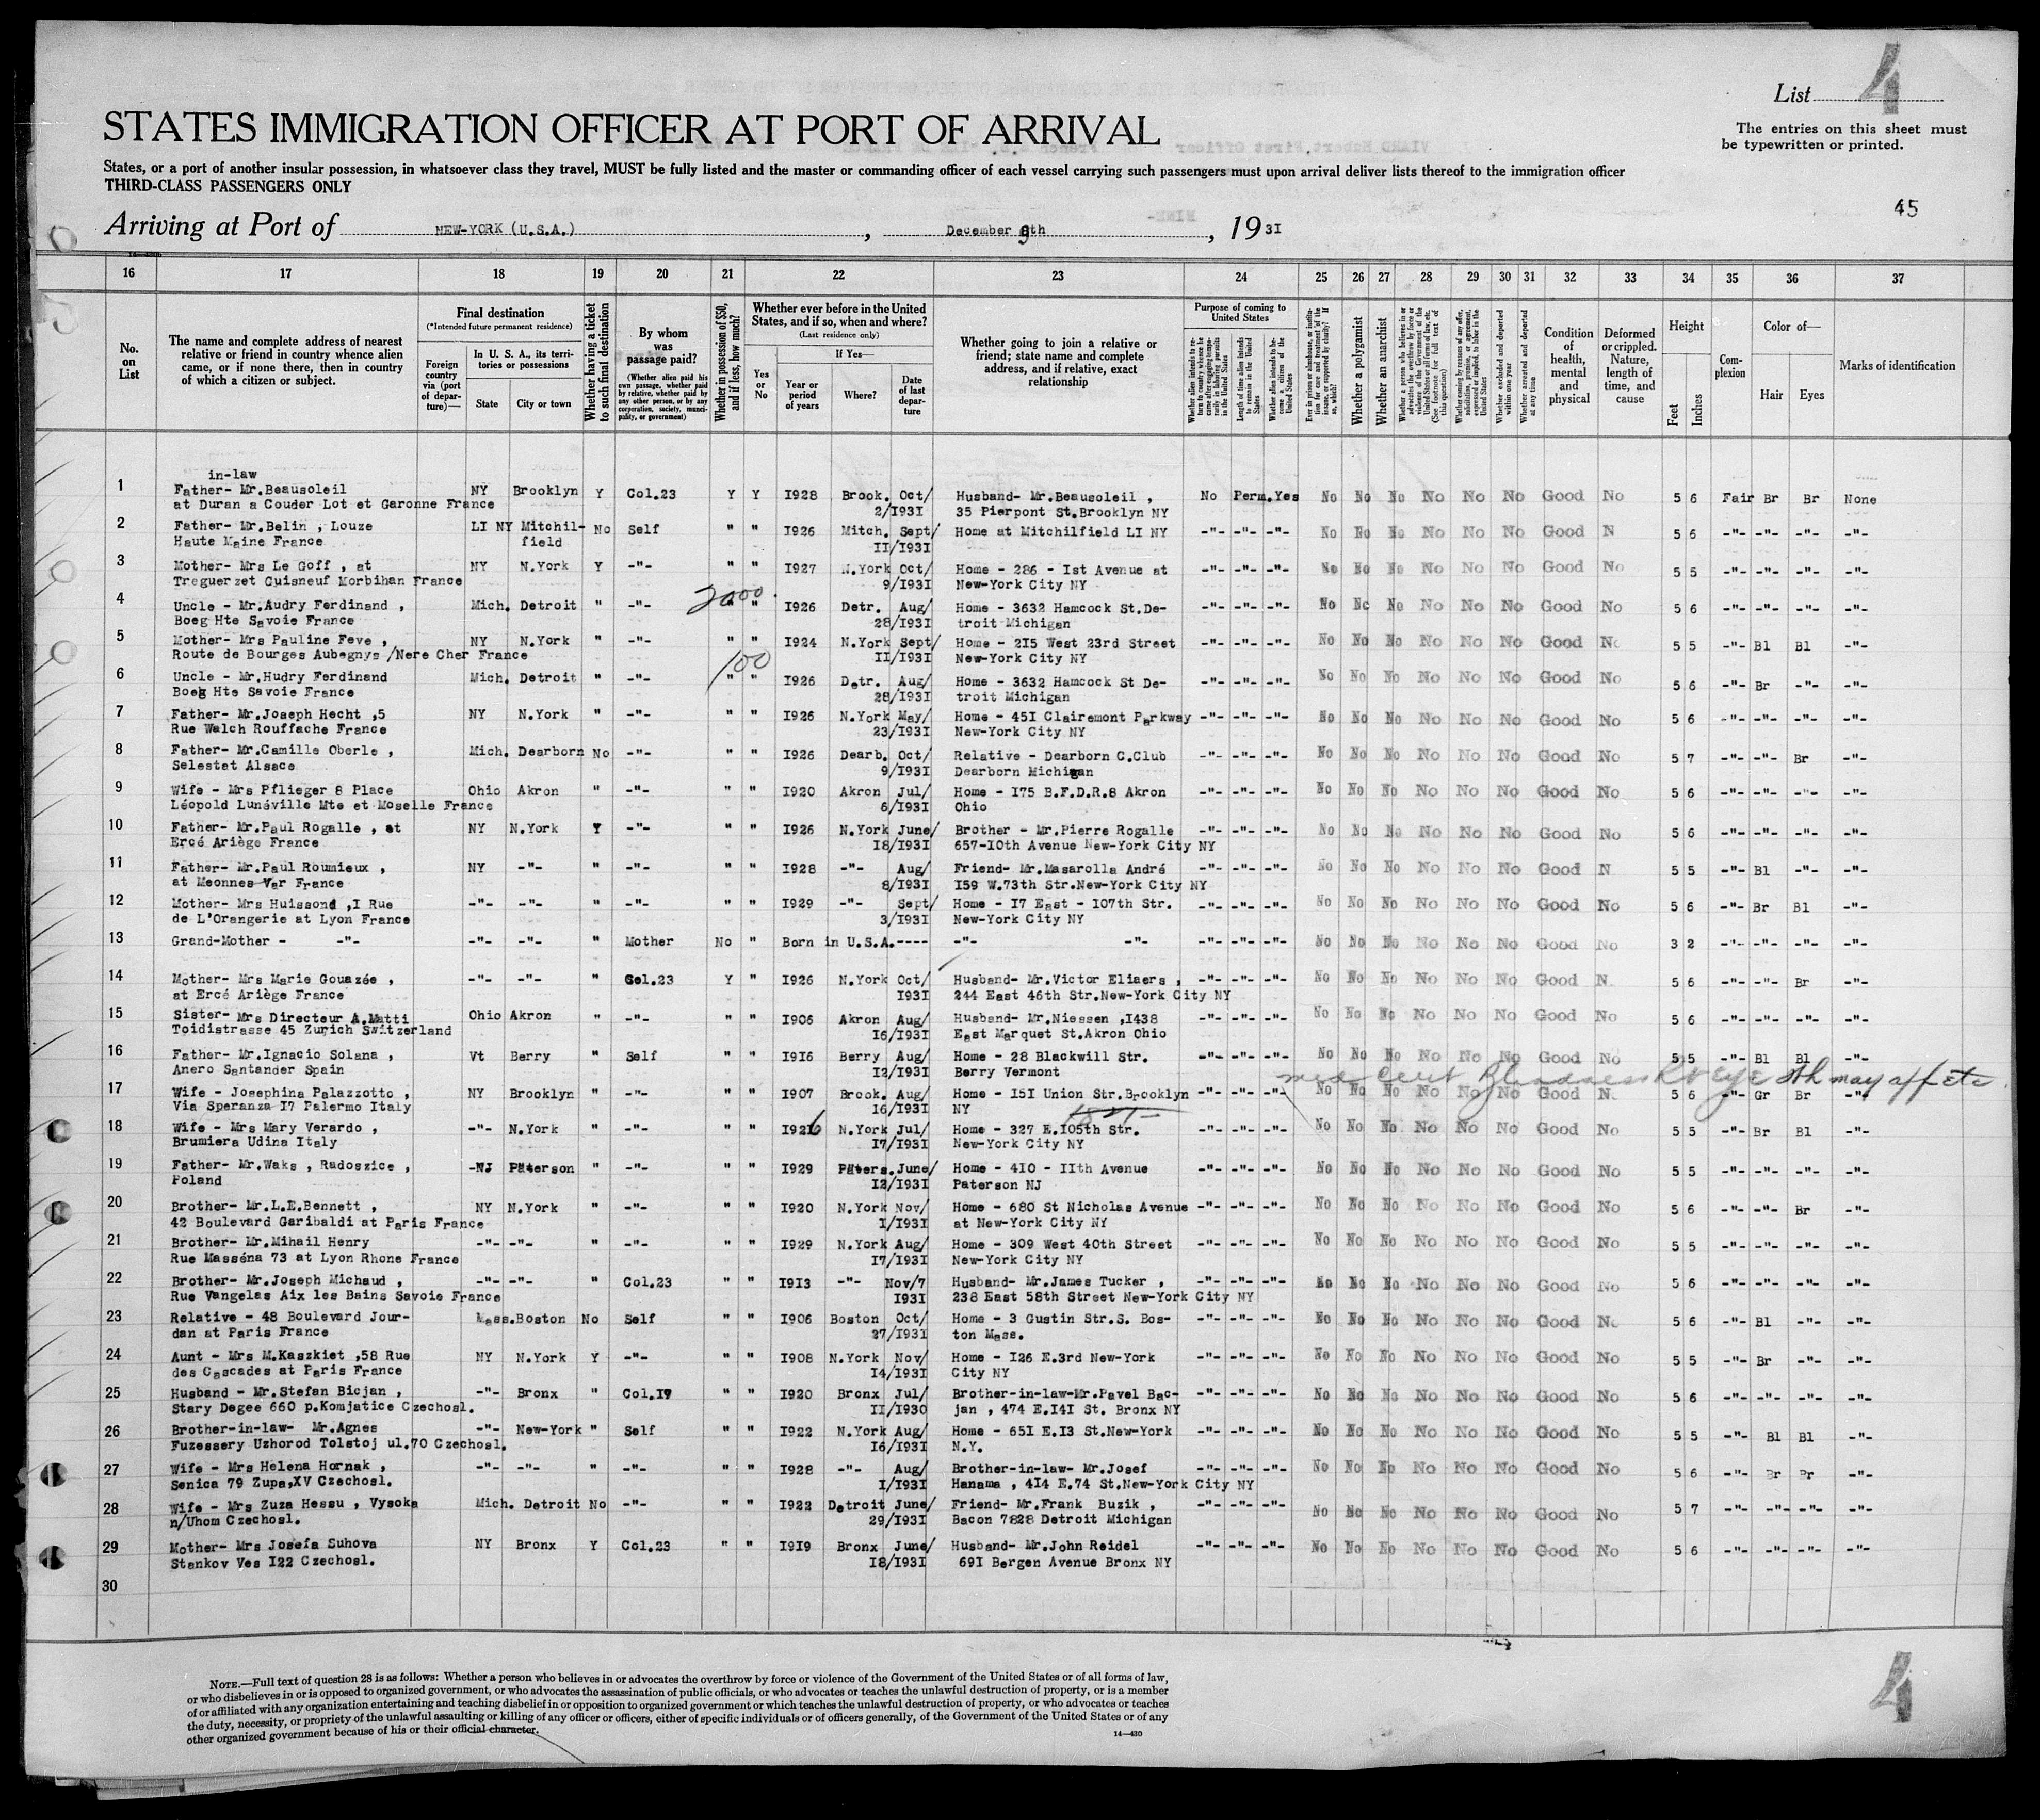 List 4
STATES IMMIGRATION OFFICER AT PORT OF ARRIVAL
The entries on this sheet must
be typewritten or printed.
States, or a port of another insular possession, in whatsoever class they travel, MUST be fully listed and the master or commanding officer of each vessel carrying such passengers must upon arrival deliver lists thereof to the immigration officer
THIRD-CLASS PASSENGERS ONLY
45
Arriving at Port of NEW-YORK (U.S.A.) , December 8th , 19 31
16 17 18 19 20 21 22 23 24 25 26 27 28 29 30 31 32 33 34 35 36 37
No. on List
The name and complete address of nearest relative or friend in country whence alien came, or if none there, then in country of which a citizen or subject.
Final destination
(*Intended future permanent residence)
Foreign country via (port of departure)—
In U. S. A., its territories or possessions
State City or town
Whether having a ticket to such final destination
By whom was passage paid?
(Whether alien paid his own passage, whether paid by relative, whether paid by any other person, or by any corporation, society, municipality, or government)
Whether in possession of $50, and if less, how much?
Whether ever before in the United States, and if so, when and where?
(Last residence only)
Yes or No
If Yes—
Year or period of years
Where?
Date of last departure
Whether going to join a relative or friend; state name and complete address, and if relative, exact relationship
Purpose of coming to United States
Whether alien intends to return to country whence he came after engaging temporarily in laboring pursuits in the United States
Length of time alien intends to remain in the United States
Whether alien intends to become a citizen of the United States
Ever in prison or almshouse, or institution for care and treatment of the insane, or supported by charity? If so, which?
Whether a polygamist
Whether an anarchist
Whether a person who believes in or advocates the overthrow by force or violence of the Government of the United States or all forms of law, etc. (See footnote for full text of this question)
Whether coming by reason of any offer, solicitation, promise, or agreement, expressed or implied, to labor in the United States
Whether excluded and deported within one year
Whether arrested and deported at any time
Condition of health, mental and physical
Deformed or crippled. Nature, length of time, and cause
Height
Feet Inches
Complexion
Color of—
Hair Eyes
Marks of identification
in-law
1 Father- Mr.Beausoleil NY Brooklyn Y Col.23 Y Y I928 Brook. Oct/ Husband- Mr.Beausoleil , No Perm. Yes No No No No No No Good No 5 6 Fair Br Br None
at Duran a Couder Lot et Garonne France 2/I93I 35 Pierpont St.Brooklyn NY
2 Father- Mr.Belin , Louze LI NY Mitchil- No Self " " I926 Mitch. Sept/ Home at Mitchilfield LI NY -"- -"- -"- No No No No No No Good N 5 6 -"- -"- -"- -"-
Haute Maine France field II/I93I
3 Mother- Mrs Le Goff , at NY N.York Y -"- " " I927 N.York Oct/ Home - 286 - Ist Avenue at -"- -"- -"- No No No No No No Good No 5 5 -"- -"- -"- -"-
Treguerzet Guisneuf Morbihan France 9/I93I New-York City NY
2000.
4 Uncle - Mr.Audry Ferdinand , Mich. Detroit " -"- " " I926 Detr. Aug/ Home - 3632 Hamcock St.De- -"- -"- -"- No No No No No No Good No 5 6 -"- -"- -"- -"-
Boeg Hte Savoie France 28/I93I troit Michigan
5 Mother- Mrs Pauline Feve , NY N.York " -"- " " I924 N.York Sept/ Home - 2I5 West 23rd Street -"- -"- -"- No No No No No No Good No 5 5 -"- Bl Bl -"-
Route de Bourges Aubegnys /Nere Cher France II/I93I New-York City NY
100
6 Uncle - Mr.Hudry Ferdinand Mich. Detroit " -"- " " I926 Detr. Aug/ Home - 3632 Hamcock St De- -"- -"- -"- No No No No No No Good No 5 6 -"- Br -"- -"-
Boeg Hte Savoie France 28/I93I troit Michigan
7 Father- Mr.Joseph Hecht ,5 NY N.York " -"- " " I926 N.York May/ Home - 45I Clairemont Parkway -"- -"- -"- No No No No No No Good No 5 6 -"- -"- -"- -"-
Rue Walch Rouffache France 23/I93I New-York City NY
8 Father- Mr.Camille Oberle , Mich. Dearborn No -"- " " I926 Dearb. Oct/ Relative - Dearborn C.Club -"- -"- -"- No No No No No No Good No 5 7 -"- -"- Br -"-
Selestat Alsace 9/I93I Dearborn Michigan
9 Wife - Mrs Pflieger 8 Place Ohio Akron " -"- " " I920 Akron Jul/ Home - I75 B.F.D.R.8 Akron -"- -"- -"- No No No No No No Good No 5 6 -"- -"- -"- -"-
Léopold Lunéville Mte et Moselle France 6/I93I Ohio
10 Father- Mr.Paul Rogalle , at NY N.York Y -"- " " I926 N.York June/ Brother - Mr.Pierre Rogalle -"- -"- -"- No No No No No No Good No 5 6 -"- -"- -"- -"-
Ercé Ariège France I8/I93I 657-I0th Avenue New-York City NY
11 Father- Mr.Paul Roumieux , NY -"- " -"- " " I928 -"- Aug/ Friend- Mr.Masarolla André -"- -"- -"- No No No No No No Good N 5 5 -"- Bl -"- -"-
at Meonnes-Var France 8/I93I I59 W.73th Str.New-York City NY
12 Mother- Mrs Huissond ,I Rue -"- -"- " -"- " " I929 -"- Sept/ Home - I7 East - I07th Str. -"- -"- -"- No No No No No No Good No 5 6 -"- Br Bl -"-
de L'Orangerie at Lyon France 3/I93I New-York City NY
13 Grand-Mother - -"- -"- -"- " Mother No " Born in U.S.A.---- -"- -"- -"- -"- -"- No No No No No No Good No 3 2 -"- -"- -"- -"-
14 Mother- Mrs Marie Gouazée , -"- -"- " Col.23 Y " I926 N.York Oct/ Husband- Mr.Victor Eliaers , -"- -"- -"- No No No No No No Good N 5 6 -"- -"- Br -"-
at Ercé Ariège France I93I 244 East 46th Str.New-York City NY
15 Sister- Mrs Directeur A.Matti Ohio Akron " -"- " " I906 Akron Aug/ Husband- Mr.Niessen ,I438 -"- -"- -"- No No No No No No Good No 5 6 -"- -"- -"- -"-
Toidistrasse 45 Zurich Switzerland I6/I93I East Marquet St.Akron Ohio
16 Father- Mr.Ignacio Solana , Vt Berry " Self " " I9I6 Berry Aug/ Home - 28 Blackwill Str. -"- -"- -"- No No No No No No Good No 5 5 -"- Bl Bl -"-
Anero Santander Spain I2/I93I Berry Vermont
med cert Blindness Rt eye Oth may aff etc.
17 Wife - Josephina Palazzotto , NY Brooklyn " -"- " " I907 Brook. Aug/ Home - I5I Union Str.Brooklyn -"- -"- -"- No No No No No No Good N 5 6 -"- Gr Br -"-
Via Speranza I7 Palermo Italy I6/I93I NY
18 Wife - Mrs Mary Verardo , -"- N.York " -"- " " I926 N.York Jul/ Home - 327 E.I05th Str. -"- -"- -"- No No No No No No Good No 5 5 -"- Br Bl -"-
Brumiera Udina Italy I7/I93I New-York City NY
19 Father- Mr.Waks , Radoszice , -NJ Paterson " -"- " " I929 Paters. June/ Home - 4I0 - IIth Avenue -"- -"- -"- No No No No No No Good No 5 5 -"- -"- -"- -"-
Poland I2/I93I Paterson NJ
20 Brother- Mr.L.E.Bennett , NY N.York " -"- " " I920 N.York Nov/ Home - 680 St Nicholas Avenue -"- -"- -"- No No No No No No Good No 5 6 -"- -"- Br -"-
42 Boulevard Garibaldi at Paris France I/I93I at New-York City NY
21 Brother- Mr.Mihail Henry -"- -"- " -"- " " I929 N.York Aug/ Home - 309 West 40th Street -"- -"- -"- No No No No No No Good No 5 5 -"- -"- -"- -"-
Rue Masséna 73 at Lyon Rhone France I7/I93I New-York City NY
22 Brother- Mr.Joseph Michaud , -"- -"- " Col.23 " " I9I3 -"- Nov/7 Husband- Mr.James Tucker , -"- -"- -"- No No No No No No Good No 5 6 -"- -"- -"- -"-
Rue Vangelas Aix les Bains Savoie France I93I 238 East 58th Street New-York City NY
23 Relative - 48 Boulevard Jour- Mass. Boston No Self " " I906 Boston Oct/ Home - 3 Gustin Str.S. Bos- -"- -"- -"- No No No No No No Good No 5 6 -"- Bl -"- -"-
dan at Paris France 27/I93I ton Mass.
24 Aunt - Mrs M.Kaszkiet ,58 Rue NY N.York Y -"- " " I908 N.York Nov/ Home - I26 E.3rd New-York -"- -"- -"- No No No No No No Good No 5 5 -"- Br -"- -"-
des Cascades at Paris France I4/I93I City NY
25 Husband - Mr.Stefan Bicjan , -"- Bronx " Col.I7 " " I920 Bronx Jul/ Brother-in-law-Mr.Pavel Bac- -"- -"- -"- No No No No No No Good No 5 6 -"- -"- -"- -"-
Stary Degee 660 p.Komjatice Czechosl. II/I930 jan , 474 E.I4I St. Bronx NY
26 Brother-in-law- Mr.Agnes -"- New-York " Self " " I922 N.York Aug/ Home - 65I E.I3 St.New-York -"- -"- -"- No No No No No No Good No 5 5 -"- Bl Bl -"-
Fuzessery Uzhorod Tolstoj ul.70 Czechosl. I6/I93I N.Y.
27 Wife - Mrs Helena Hornak , -"- -"- " -"- " " I928 -"- Aug/ Brother-in-law- Mr.Josef -"- -"- -"- No No No No No No Good No 5 6 -"- Br Br -"-
Senica 79 Zupa,XV Czechosl. I/I93I Hanama , 4I4 E.74 St.New-York City NY
28 Wife - Mrs Zuza Hessu , Vysoka Mich. Detroit No -"- " " I922 Detroit June/ Friend- Mr.Frank Buzik , -"- -"- -"- No No No No No No Good No 5 7 -"- -"- -"- -"-
n/Uhom Czechosl. 29/I93I Bacon 7828 Detroit Michigan
29 Mother- Mrs Josefa Suhova NY Bronx Y Col.23 " " I9I9 Bronx June/ Husband- Mr.John Reidel -"- -"- -"- No No No No No No Good No 5 6 -"- -"- -"- -"-
Stankov Ves I22 Czechosl. I8/I93I 69I Bergen Avenue Bronx NY
30
NOTE.—Full text of question 28 is as follows: Whether a person who believes in or advocates the overthrow by force or violence of the Government of the United States or of all forms of law,
or who disbelieves in or is opposed to organized government, or who advocates the assassination of public officials, or who advocates or teaches the unlawful destruction of property, or is a member
of or affiliated with any organization entertaining and teaching disbelief in or opposition to organized government or which teaches the unlawful destruction of property, or who advocates or teaches
the duty, necessity, or propriety of the unlawful assaulting or killing of any officer or officers, either of specific individuals or of officers generally, of the Government of the United States or of any
other organized government because of his or their official character.
14—430
4